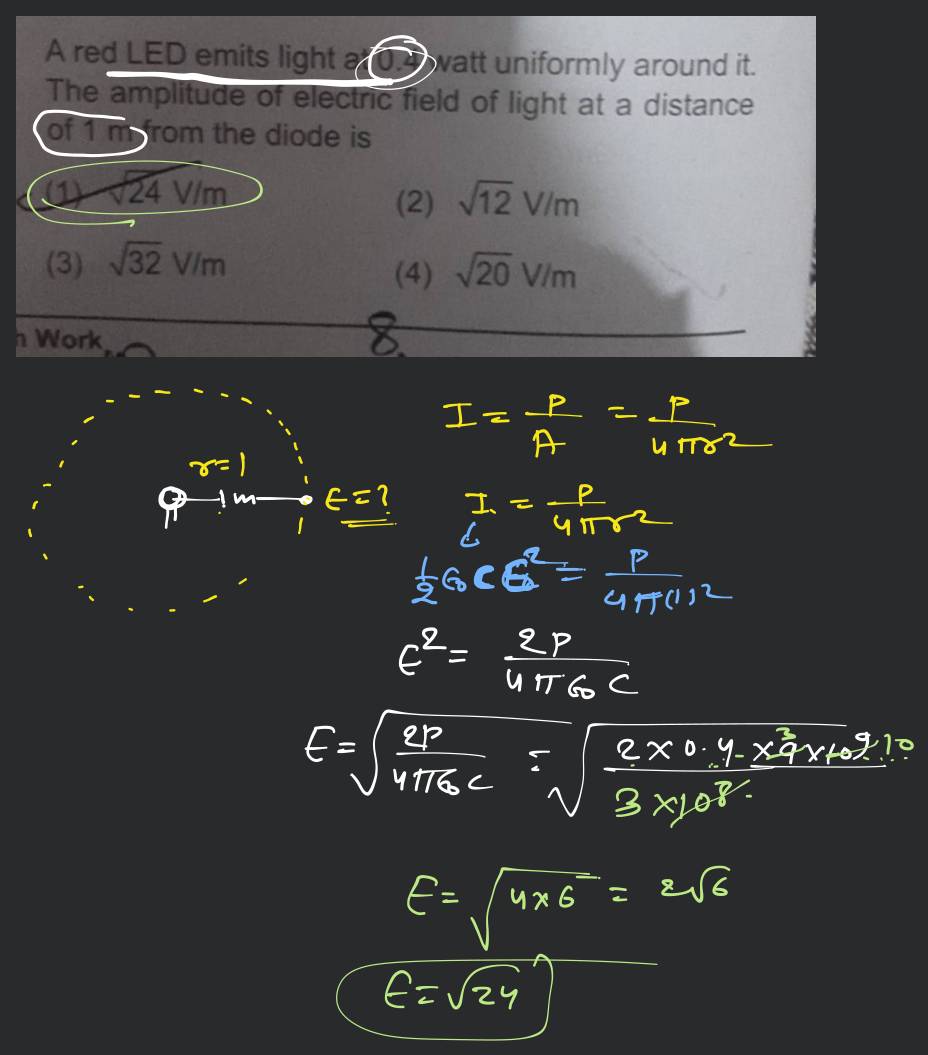 A red LED emits light at 0.4 watt uniformly around it.
The amplitude of electric field of light at a distance
of 1 m from the diode is
(1) √24 V/m (2) √12 V/m
(3) √32 V/m (4) √20 V/m
Work 8.
I = P/A = P/4πr²
r=1
1m E=? I = P/4πr²
½ε₀CE² = P/4π(1)²
E² = 2P/4πε₀C
E = √(2P/4πε₀C) = √(2×0.4×9×10⁹/3×10⁸) 3 10
E = √(4×6) = 2√6
E = √24